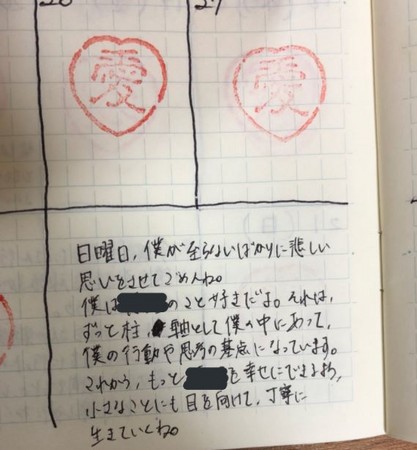 愛
愛
日曜日、僕が至らないばかりに悲しい
思いをさせてごめんね。
僕は のことが好きだよ。それは、
ずっと柱、軸として僕の中にあって、
僕の行動や思考の基点になっています。
これから、もっと を幸せにできるよう、
小さなことにも目を向けて、丁寧に
生きていくね。